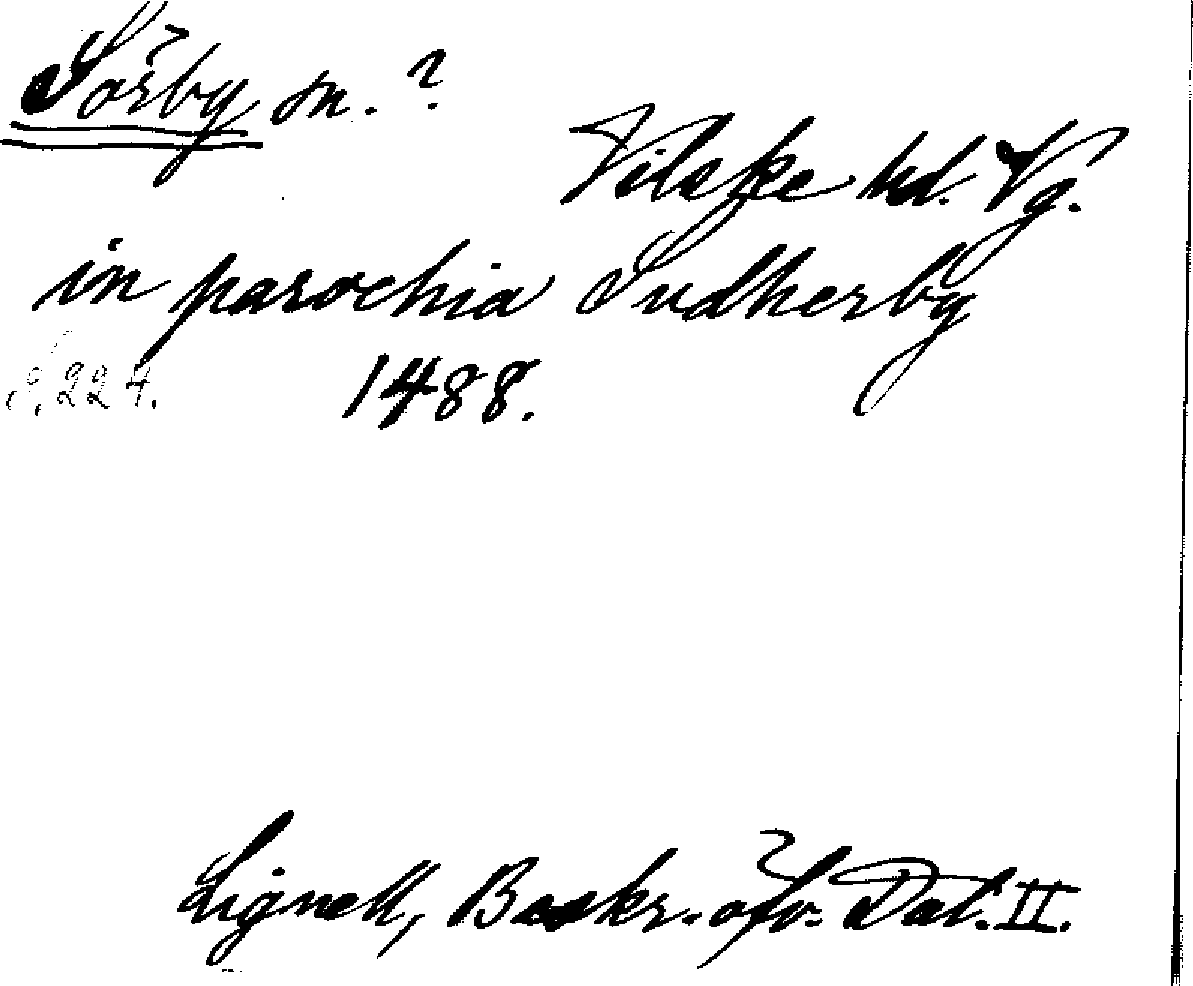 Sörby sn. ?
Vilske hd. Vg.
in parochia Sudherby
S. 224. 1488.
Lignell, Beskr. öfv. Dal. II.